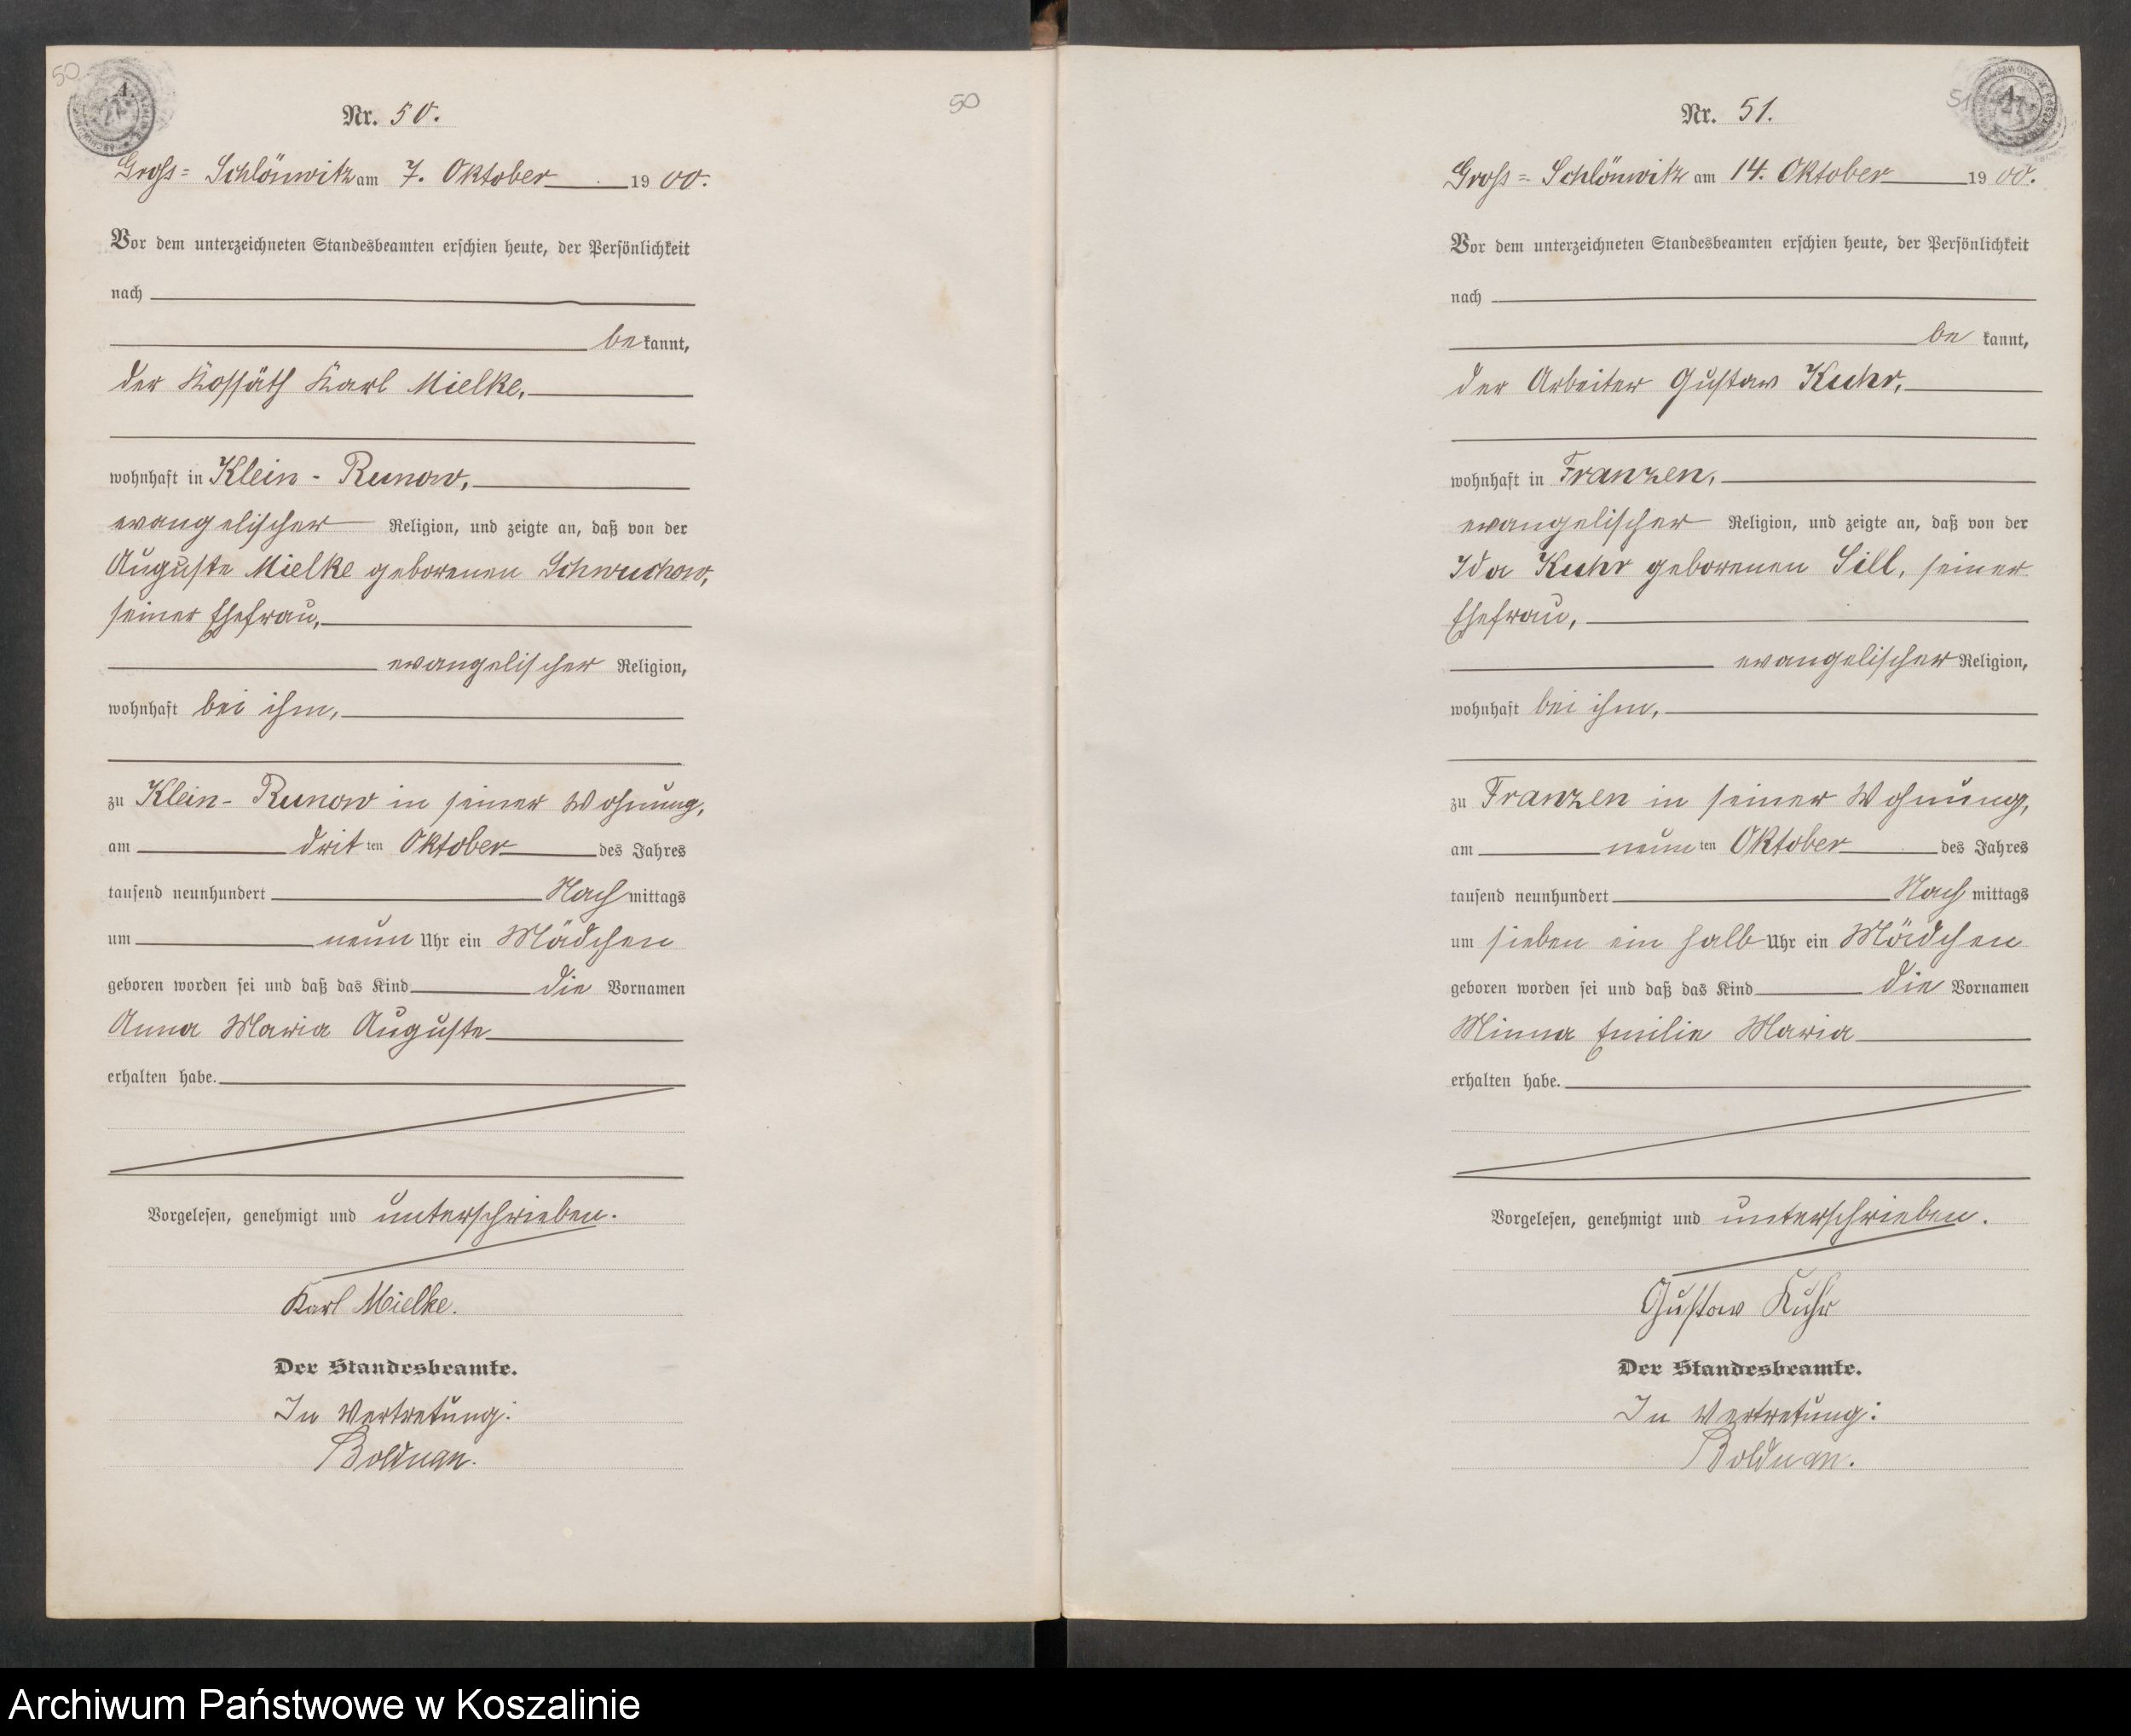 50
Nr. 50.
50
Gross= Schlönwitz am 7. Oktober 1900.
Vor dem unterzeichneten Standesbeamten erschien heute, der Persönlichkeit
nach
bekannt,
der Kossäth Karl Mielke,
wohnhaft in Klein - Runow,
evangelischer Religion, und zeigte an, daß von der
Auguste Mielke geborenen Schwuchow,
seiner Ehefrau,
evangelischer Religion,
wohnhaft bei ihm,
zu Klein- Runow in seiner Wohnung,
am dritten Oktober des Jahres
tausend neunhundert Nachmittags
um neun Uhr ein Mädchen
geboren worden sei und daß das Kind die Vornamen
Anna Maria Auguste
erhalten habe.
Vorgelesen, genehmigt und unterschrieben.
Karl Mielke.
Der Standesbeamte.
In Vertretung:
Bolduan.
Nr. 51.
51
Gross= Schlönwitz am 14. Oktober 1900.
Vor dem unterzeichneten Standesbeamten erschien heute, der Persönlichkeit
nach
bekannt,
der Arbeiter Gustav Kuhr,
wohnhaft in Franzen,
evangelischer Religion, und zeigte an, daß von der
Ida Kuhr geborenen Sill, seiner
Ehefrau,
evangelischer Religion,
wohnhaft bei ihm,
zu Franzen in seiner Wohnung,
am neunten Oktober des Jahres
tausend neunhundert Nachmittags
um sieben ein halb Uhr ein Mädchen
geboren worden sei und daß das Kind die Vornamen
Minna Emilie Maria
erhalten habe.
Vorgelesen, genehmigt und unterschrieben.
Gustav Kuhr
Der Standesbeamte.
In Vertretung:
Bolduan.
Archiwum Państwowe w Koszalinie